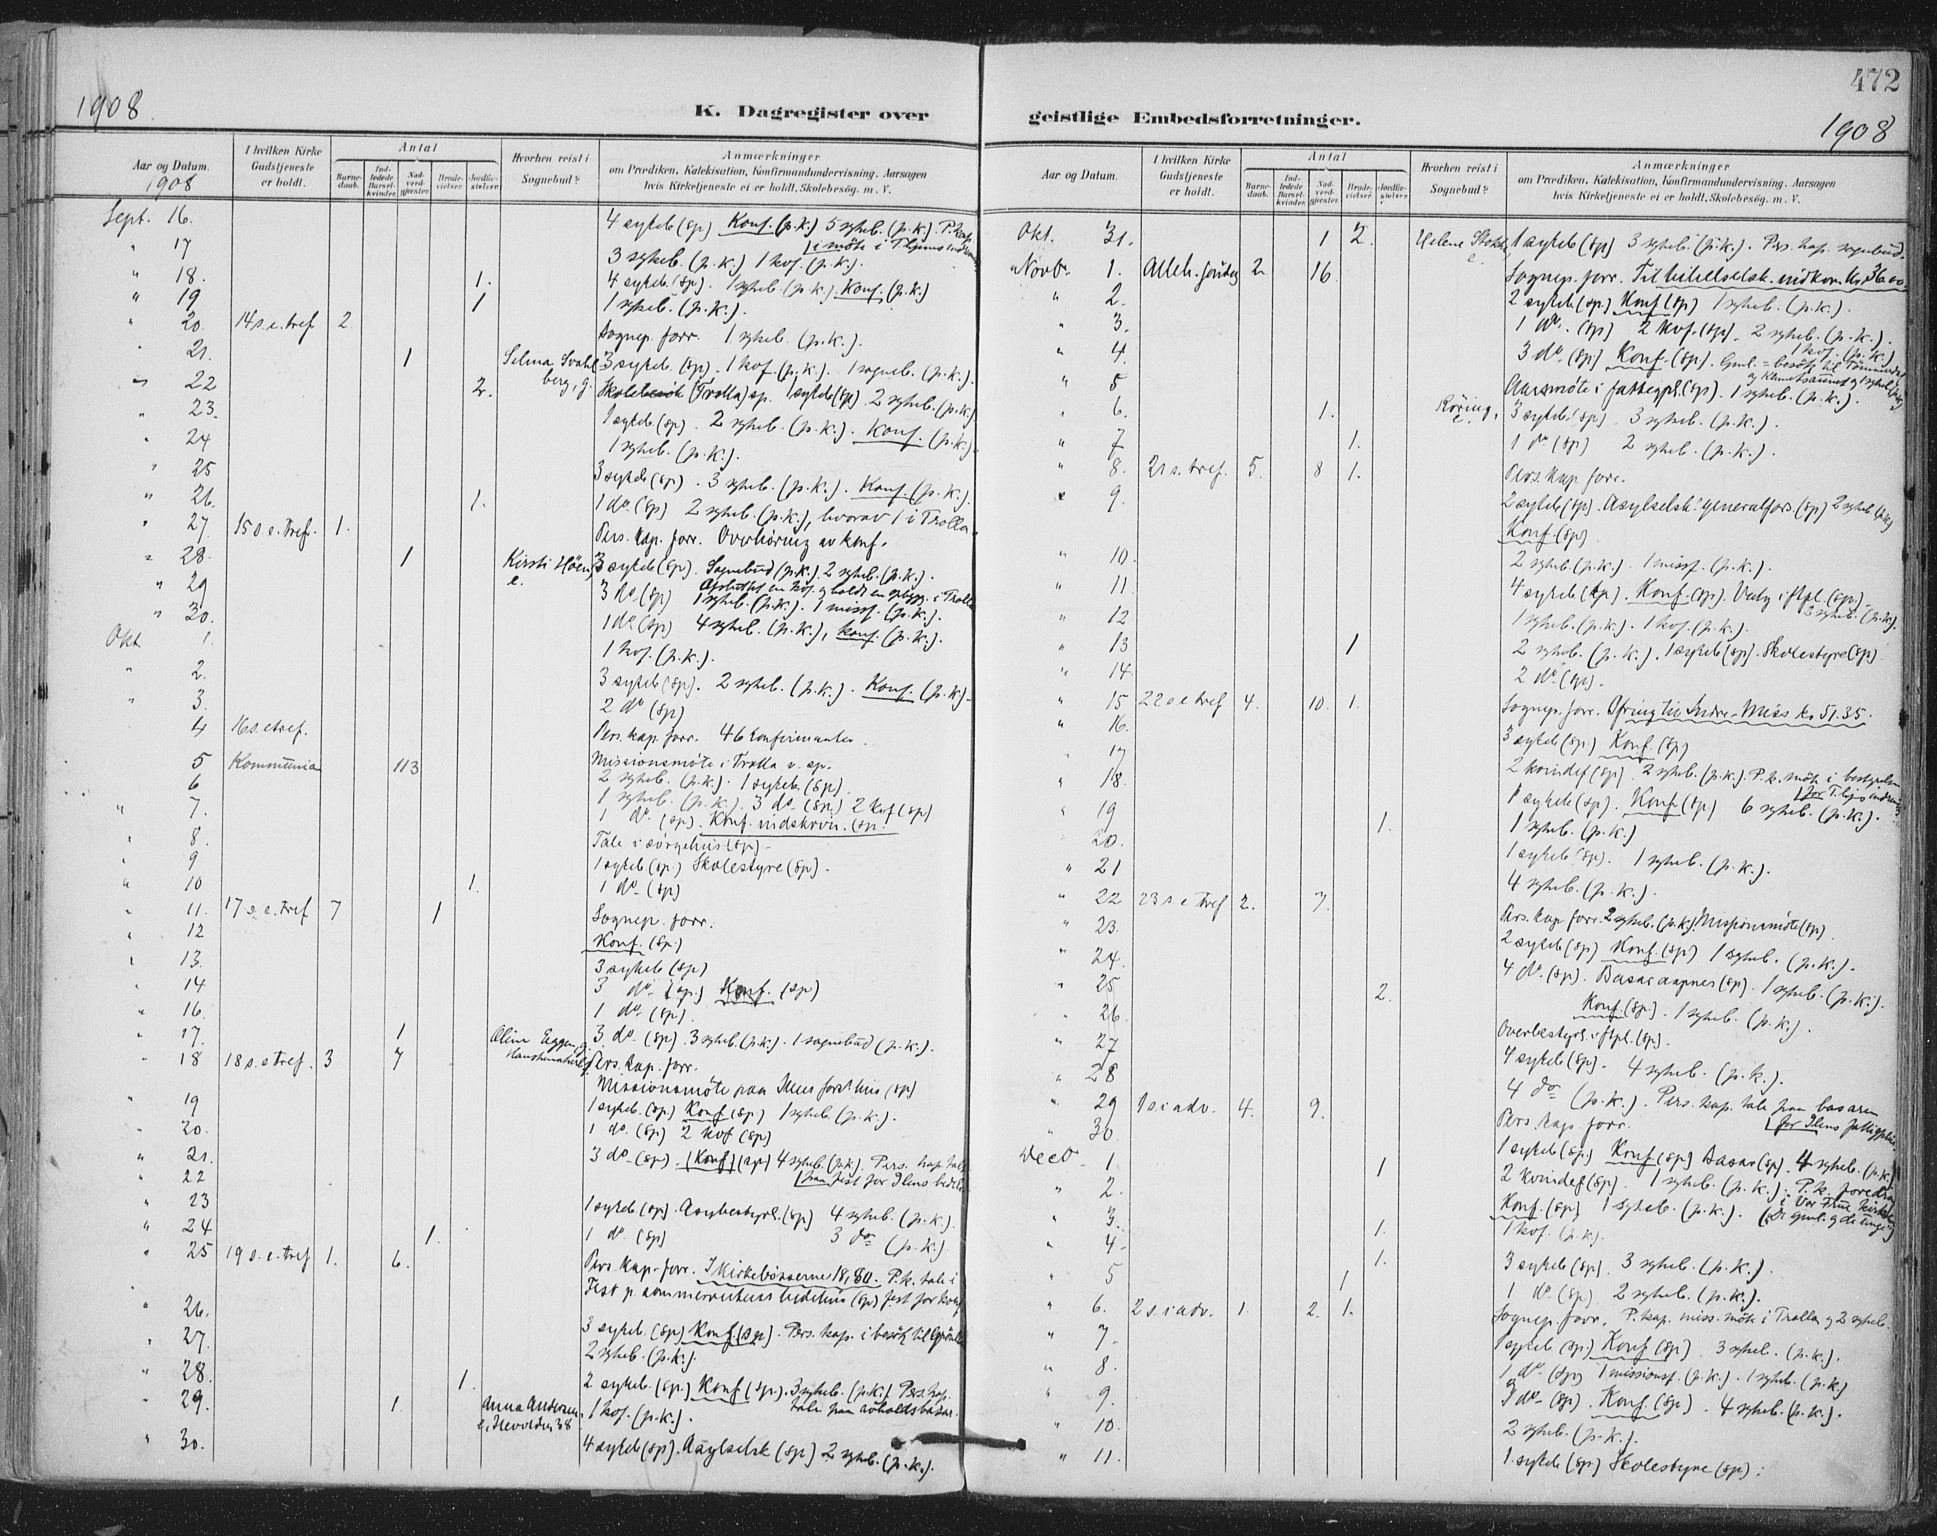 1908
K. Dagregister over
Aar og Datum. 1908
I hvilken Kirke Gudstjeneste er holdt.
Antal
Barnedaab.
Indledede Barselkvinder.
Nadverdgjester.
Brudevielser.
Jordfæstelser.
Hvorhen reist i Sognebud?
Anmærkninger
om Prædiken, Katekisation, Konfirmandundervisning, Aarsagen
hvis Kirketjeneste ei er holdt, Skolebesøg. m. V.
Sept. 16. 4 sykeb (sp) Konf. (p.k.) 5 sykeb. (p.k.). P. kap.
i möte i
" 17 3 sykeb. (p.k.) 1 kof. (p.k.).
" 18. 1. 4 sykeb. (sp). 1 sykeb. (p.k.). Konf. (p.k.)
" 19 1 1 sykeb. (p.k.).
" 20. 14 s.e.tref 2. Sognep. forr. 1 sykeb. (p.k.).
" 21. 1 Selma Svahlberg, g. 3 sykeb. (sp). 1 kof. (p.k.). 1 sogneb. (p.k.).
" 22 2. Skolebesök (Trolla) sp. 1 sykeb (sp) 2 sykeb. (p.k.)
" 23. 1 sykeb (sp). 2 sykeb. (p.k.). Konf. (p.k.).
" 24 1 sykeb. (p.k.).
" 25 3 sykeb (sp). 3 sykeb. (p.k.). Konf. (p.k.).
" 26. 1. 1 do (sp) 2 sykeb. (p.k.), hvorav 1 i Trolla
" 27 15 s e. tref. 1. Pers. kap. forr. Overhöring av konf.
" 28. 1 Kirsti Höen, e. 3 sykeb (sp). Sognebud (p.k.). 2 sykeb. (p.k.).
" 29 3 do (sp) 1 sykeb. (p.k.). 1 miss. (p.k.).
" 30. 1 do (sp) 4 sykeb. (p.k.), konf. (p.k.).
Okt 1. 1 kof. (p.k.).
" 2. 3 sykeb (sp). 2 sykeb. (p.k.). Konf. (p.k.)
" 3. 2 do (sp)
4 16 s. e tref. Pers. kap. forr. 46 konfirmanter.
5 Kommunion 113 Missionsmöte i Trolla v. sp.
6 2 sykeb. (p.k.). 1 sykeb. (sp).
" 7. 1 sykeb. (p.k.). 3 do (sp.) 2 kof (sp)
1 do. (sp). Konf. indskrivn. (sp.
" 8. Tale i sörgehus (sp)
" 9 1 sykeb (sp.) Skolestyre (sp).
" 10 1. 1 do (sp)
" 11. 17 s. e. tref 7 1 Sognep. forr.
" 12 Konf. (sp.)
" 13. 3 sykeb (sp)
" 14 3 do (sp.) Konf. (sp)
" 16. 1 do (sp).
" 17. 1 Oline Eggen, g. 3 do. (sp). 3 sykeb. (p.k.). 1 sognebud (p.k.).
" 18 18 s. e tref. 3 7 Pers. kap. forr.
Missionsmöte paa Ilens forsthus (sp)
" 19 1 sykeb. (sp.) Konf (sp.) 1 sykeb. (p.k.).
" 20. 1 do. (sp) 2 kof (sp)
" 21. 3 do (sp). (Konf) (sp) 4 sykeb. (p.k.). Pers. kap. tale
" 22 paa fest for Ilens
" 23 1 sykeb (sp). Asylbestyrl. (sp) 4 sykeb. (p.k.).
" 24 1. 1 do. (sp) 3 do (p.k.).
" 25 19 s. e. tref 1. 6. Pers. kap. forr. I Kirkebösserne 18,80. P. k. tale i
fest for konf.
" 26. 3 sykeb. (sp) Konf (sp). Pers. kap. i besök til
" 27. 2 sykeb. (p.k.).
" 28. 1. 2 sykeb. (sp.) Konf (sp.). 3 sykeb. (p.k.). Pers. kap.
" 29. 1. Anna Andersen, 1 kof. (p.k.). tale paa avholdsbasar.
" 30. 4 sykeb (sp). Asylselsk (sp) 2 sykeb. (p.k.).
472
1908
geistlige Embedsforretninger.
Aar og Datum.
I hvilken Kirke Gudstjeneste er holdt.
Antal
Barnedaab.
Indledede Barselkvinder.
Nadverdgjester.
Brudevielser.
Jordfæstelser.
Hvorhen reist i Sognebud?
Anmærkninger
om Prædiken, Katekisation, Konfirmandundervisning, Aarsagen
hvis Kirketjeneste ei er holdt, Skolebesøg. m. V.
Okt. 31. 1 2. Helene Stokke, e. 1 sykeb (sp) 3 sykeb. (p.k.). Pers. kap. sognebud.
Novb. 1. Alleh. söndag 2. 16 Sognep. forr. Til bibelselsk. indkom kr. 36.00
" 2. 2 sykeb (sp.) Konf (sp) 1 sykeb. (p.k.).
" 3. 1 do. (sp) 2 kof. (sp). 2 sykeb. (p.k.).
1 kof. (p.k.)
" 4. 3 do. (sp) Konf. (sp).
" 5 Aarsmöte i fattigpl. (sp). 1 sykeb. (p.k.).
" 6. 1. Röring, e. 3 sykeb. (sp). 3 sykeb. (p.k.).
" 7 1. 1 do (sp) 2 sykeb. (p.k.).
" 8. 21 s. tref. 5. 8 1. Pers. kap. forr.
" 9. 2 sykeb (sp). Asylselsk. generalfors. (sp) 2 sykeb (p.k.)
Konf. (sp).
" 10. 2 sykeb. (p.k.). 1 miss. (p.k.).
" 11. 4 sykeb (sp). Konf. (sp). Valg i ftpl. (sp).
3 sykeb. (p.k.).
" 12 1 sykeb. (p.k.). 1 kof. (p.k.).
" 13 1 2 sykeb. (p.k.). 1 sykeb (sp). Skolestyre (sp)
" 14. 2 do (sp).
" 15 22 s e tref 4. 10. 1. Sognep. forr. Ofring til Indre-Miss kr 51.35.
" 16. 3 sykeb (sp) Konf. (sp)
" 17 2 kvindef (sp). 2 sykeb. (p.k.). P. k. möte i bestyrelsen
" 18. 1 sykeb (sp). Konf. (sp) 6 sykeb. (p.k.).
" 19 1. 1 sykeb. (p.k.)
" 20. 1 sykeb (sp). 1 sykeb. (p.k.).
" 21 4 sykeb. (p.k.).
" 22 23 s e tref 2. 7. Pers. kap forr. 2 sykeb. (p.k.). Missionsmöte (sp)
" 23. 2 sykeb (sp) Konf. (sp) 1 sykeb. (p.k.).
" 24. 4 do. (sp). Basar aapnes (sp). 1 sykeb. (p.k.).
" 25 2. Konf. (sp). 1 sykeb. (p.k.).
" 26. Overbestyrl. i ftpl. (sp).
" 27 4 sykeb (sp). 4 sykeb. (p.k.).
" 28 4 do (p.k.). Pers. kap. tale paa basaren
for Ilens fattigpleie
" 29 1 s. i adv. 4. 9. Pers. kap. forr.
" 30. 1 sykeb (sp) Konf (sp) Basar (sp). 4 sykeb. (p.k.)
Decb. 1. 1 2 kvindef (sp). 1 sykeb. (p.k.). P. k. foredrag
i Vor Frue kirke
" 2. Konf. (sp) 1 sykeb. (p.k.). (De gml. og de unge)
" 3. 1. 1 kof. (p.k.).
" 4. 1. 3 sykeb (sp). 3 sykeb. (p.k.).
" 5 1 1 do (sp). 2 sykeb. (p.k.).
" 6. 2 s i adv. 1. 2. 1. Sognep. forr. P. kap. miss. möte i Trolla og 2 sykeb.
" 7. 1 sykeb (sp.) Konf (sp). 3 sykeb. (p.k.).
" 8. 1 do (sp) 1 missionsf. (p.k.). 1 sykeb. (p.k.)
" 9. 3 do (sp). Konf. (sp). 4 sykeb. (p.k.).
" 10. 2 sykeb. (p.k.).
" 11. 1 sykeb (sp) Skolestyre (sp).